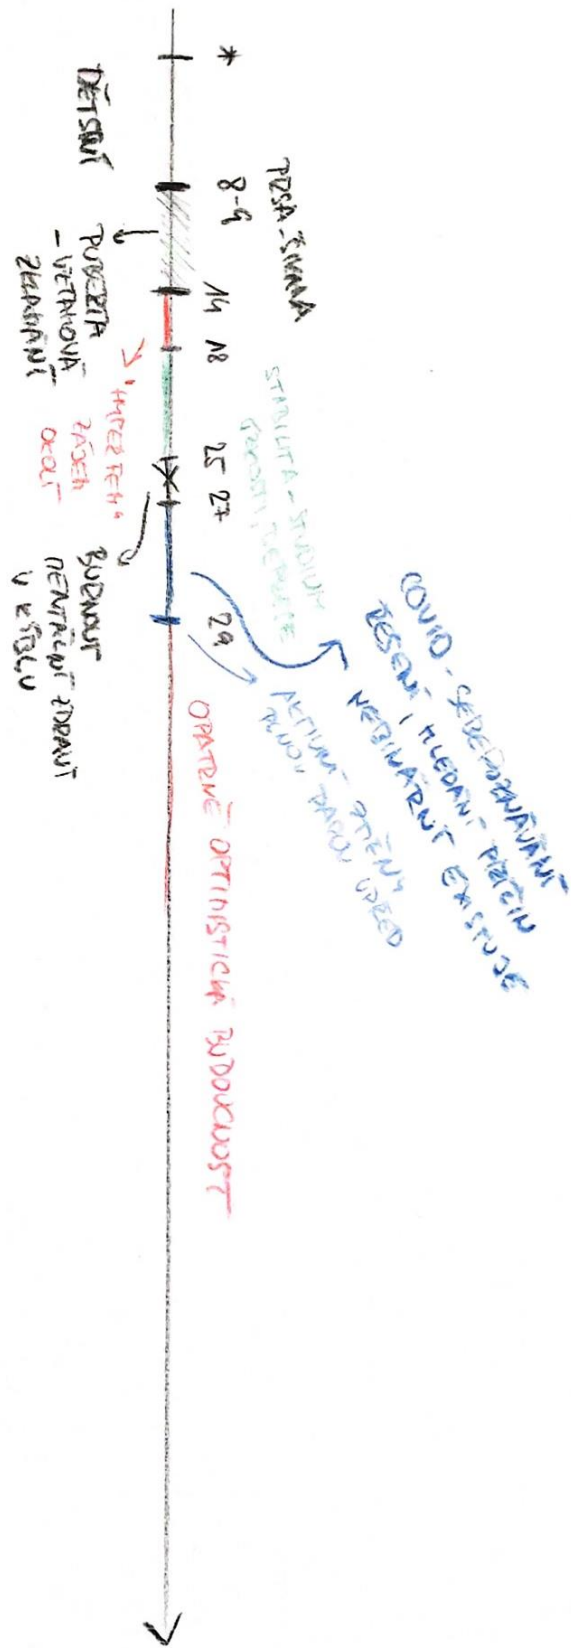 *
DĚTSTVÍ
8-9
PRSA - ŠIKANA
PUBERTA
- VZTAHOVÁ
ZKLAMÁNÍ
14
18
ZÁJEM
OKOLÍ
STABILITA - STUDIUM
25 27
BURNOUT
MENTÁLNÍ ZDRAVÍ
V KÝBLU
29
COVID - SEBEPOZNÁVÁNÍ
ŘEŠENÍ, HLEDÁNÍ PŘÍČIN
NEBINÁRNÍ EXISTUJE
AKTIVNÍ ZMĚNY
PLNOU PAROU VPŘED
OPATRNĚ OPTIMISTICKÁ BUDOUCNOST